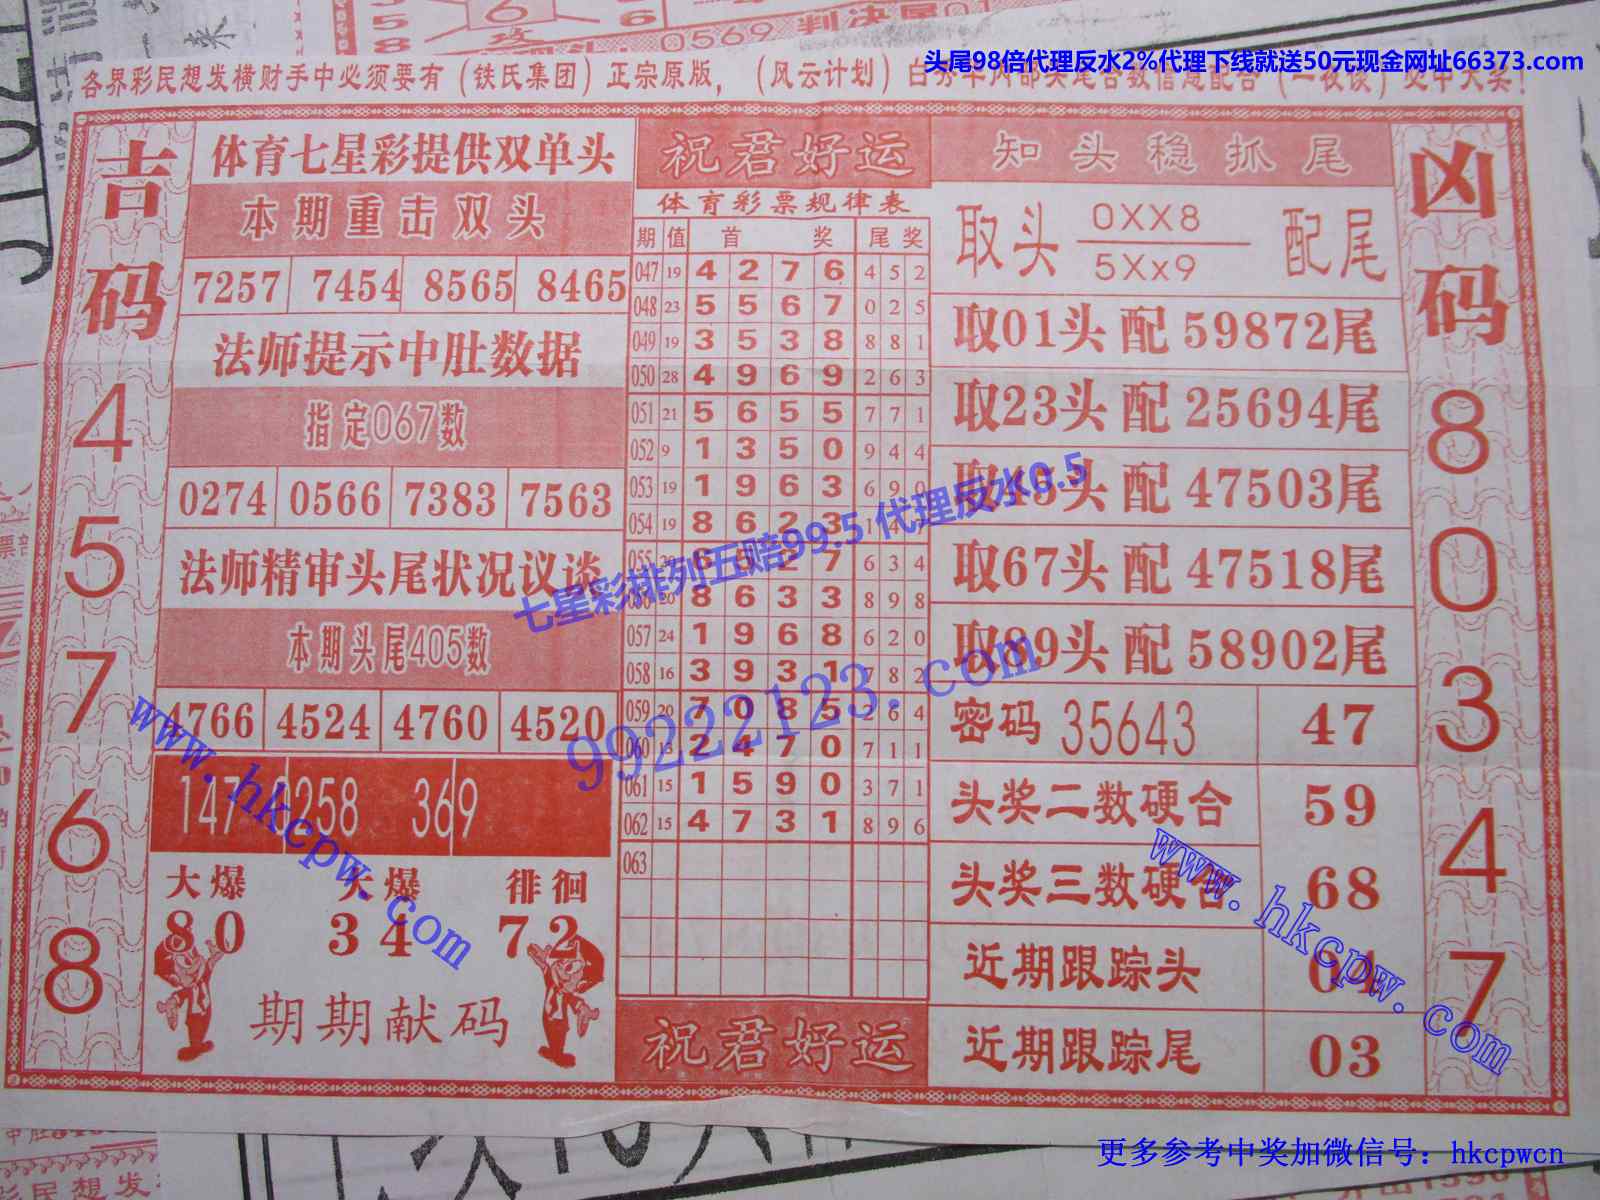 0569 判决尾01
头尾98倍代理反水2%代理下线就送50元现金网址66373.com
各界彩民想发横财手中必须要有（铁氏集团）正宗原版，（风云计划）
吉码
4
5
7
6
8
体育七星彩提供双单头
本期重击双头
7257 7454 8565 8465
法师提示中肚数据
指定067数
0274 0566 7383 7563
法师精审头尾状况议谈
本期头尾405数
4766 4524 4760 4520
147 258 369
大爆 大爆 徘徊
80 34 72
期期献码
祝君好运
体育彩票规律表
期 值 首 奖 尾 奖
047 19 4 2 7 6 4 5 2
048 23 5 5 6 7 0 2 5
049 19 3 5 3 8 8 8 1
050 28 4 9 6 9 2 6 3
051 21 5 6 5 5 7 7 1
052 9 1 3 5 0 9 4 4
053 19 1 9 6 3 6 9 0
054 19 8 6 2 3 1
055 20 6 5 2 7 6 3 4
056 20 8 6 3 3 8 9 8
057 24 1 9 6 8 6 2 0
058 16 3 9 3 1 7 8 2
059 20 7 0 8 5 2 6 4
060 13 2 4 7 0 7 1 1
061 15 1 5 9 0 3 7 1
062 15 4 7 3 1 8 9 6
063
祝君好运
知头稳抓尾
取头 0XX8 配尾
5Xx9
取01头 配 59872尾
取23头 配 25694尾
取45头 配 47503尾
取67头 配 47518尾
取89头 配 58902尾
密码 35643 47
头奖二数硬合 59
头奖三数硬合 68
近期跟踪头
近期跟踪尾 03
凶码
8
0
3
4
7
七星彩排列五赔99.5 代理反水0.5
99222123.com
www.hkcpw.com
www.hkcpw.com
更多参考中奖加微信号：hkcpwcn